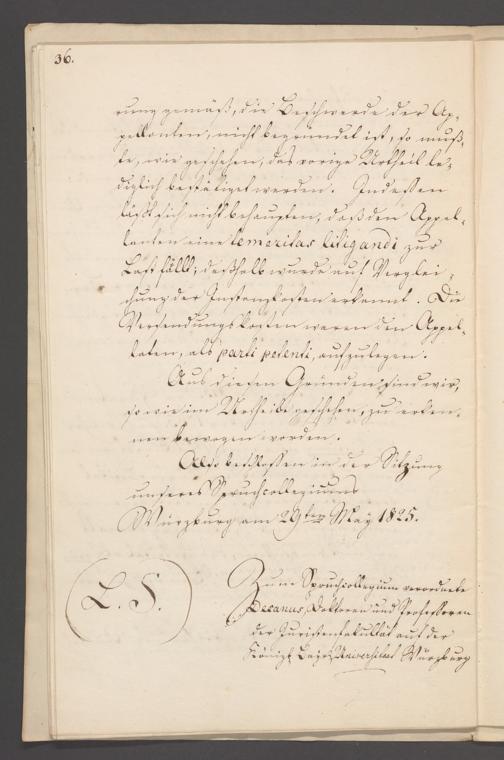 36.
rung gemäß, die Beschwerde der Ap-
pellanten, nicht begründet ist, so muß-
te, wie geschehen, das vorige Urtheil le-
diglich bestätiget werden. Indessen
läßt sich nicht behaupten, daß den Appel-
lanten eine temeritas litigandi zur
Last fällt; deßhalb wurde auf Verglei-
chung der Instanzkosten erkannt. Die
Versendungskosten waren den Appel-
laten, als parti petenti, aufzulegen.
Aus diesen Gründen sind wir,
so wie im Urtheile geschehen, zu erken-
nen bewogen worden.
Also beschlossen in der Sitzung
unseres Spruchcollegiums
Würzburg am 29ten May 1825.
L. S.
Zum Spruchcollegium verordnete
Decanus, Doktoren und Professoren
der Juristenfakultät auf der
Königl. Baier. Universitaet Würzburg